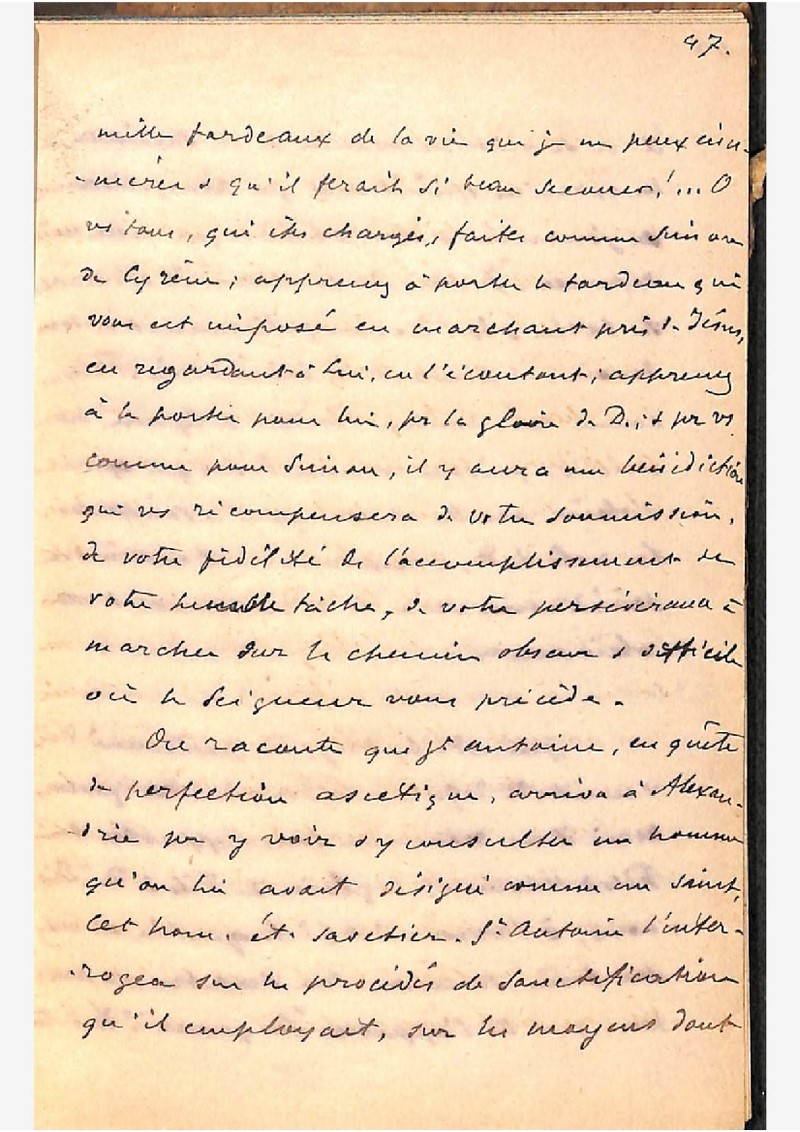 47.
mille fardeaux de la vie que je ne peux énu-
-mérer & qu'il ferait si beau secouer!... O
vs tous, qui êtes chargés, faites comme Simon
de Cyrène; apprenez à porter le fardeau qui
vous est imposé en marchant près de Jésus,
en regardant à Lui, en l'écoutant; apprenez
à le porter pour lui, pr la gloire de D.; & pr vs
comme pour Simon, il y aura une bénédiction
qui vs récompensera de votre soumission,
de votre fidélité de l'accomplissement de
votre humble tâche, de votre persévérance à
marcher sur le chemin obscur & difficile
où le Seigneur vous précède.
On raconte que St Antoine, en quête
de perfection ascétique, arriva à Alexan-
-drie pr y voir & y consulter un homme
qu'on lui avait désigné comme un saint,
Cet hom. ét. savetier. St Antoine l'inter-
-rogea sur les procédés de sanctification
qu'il employait, sur les moyens dont